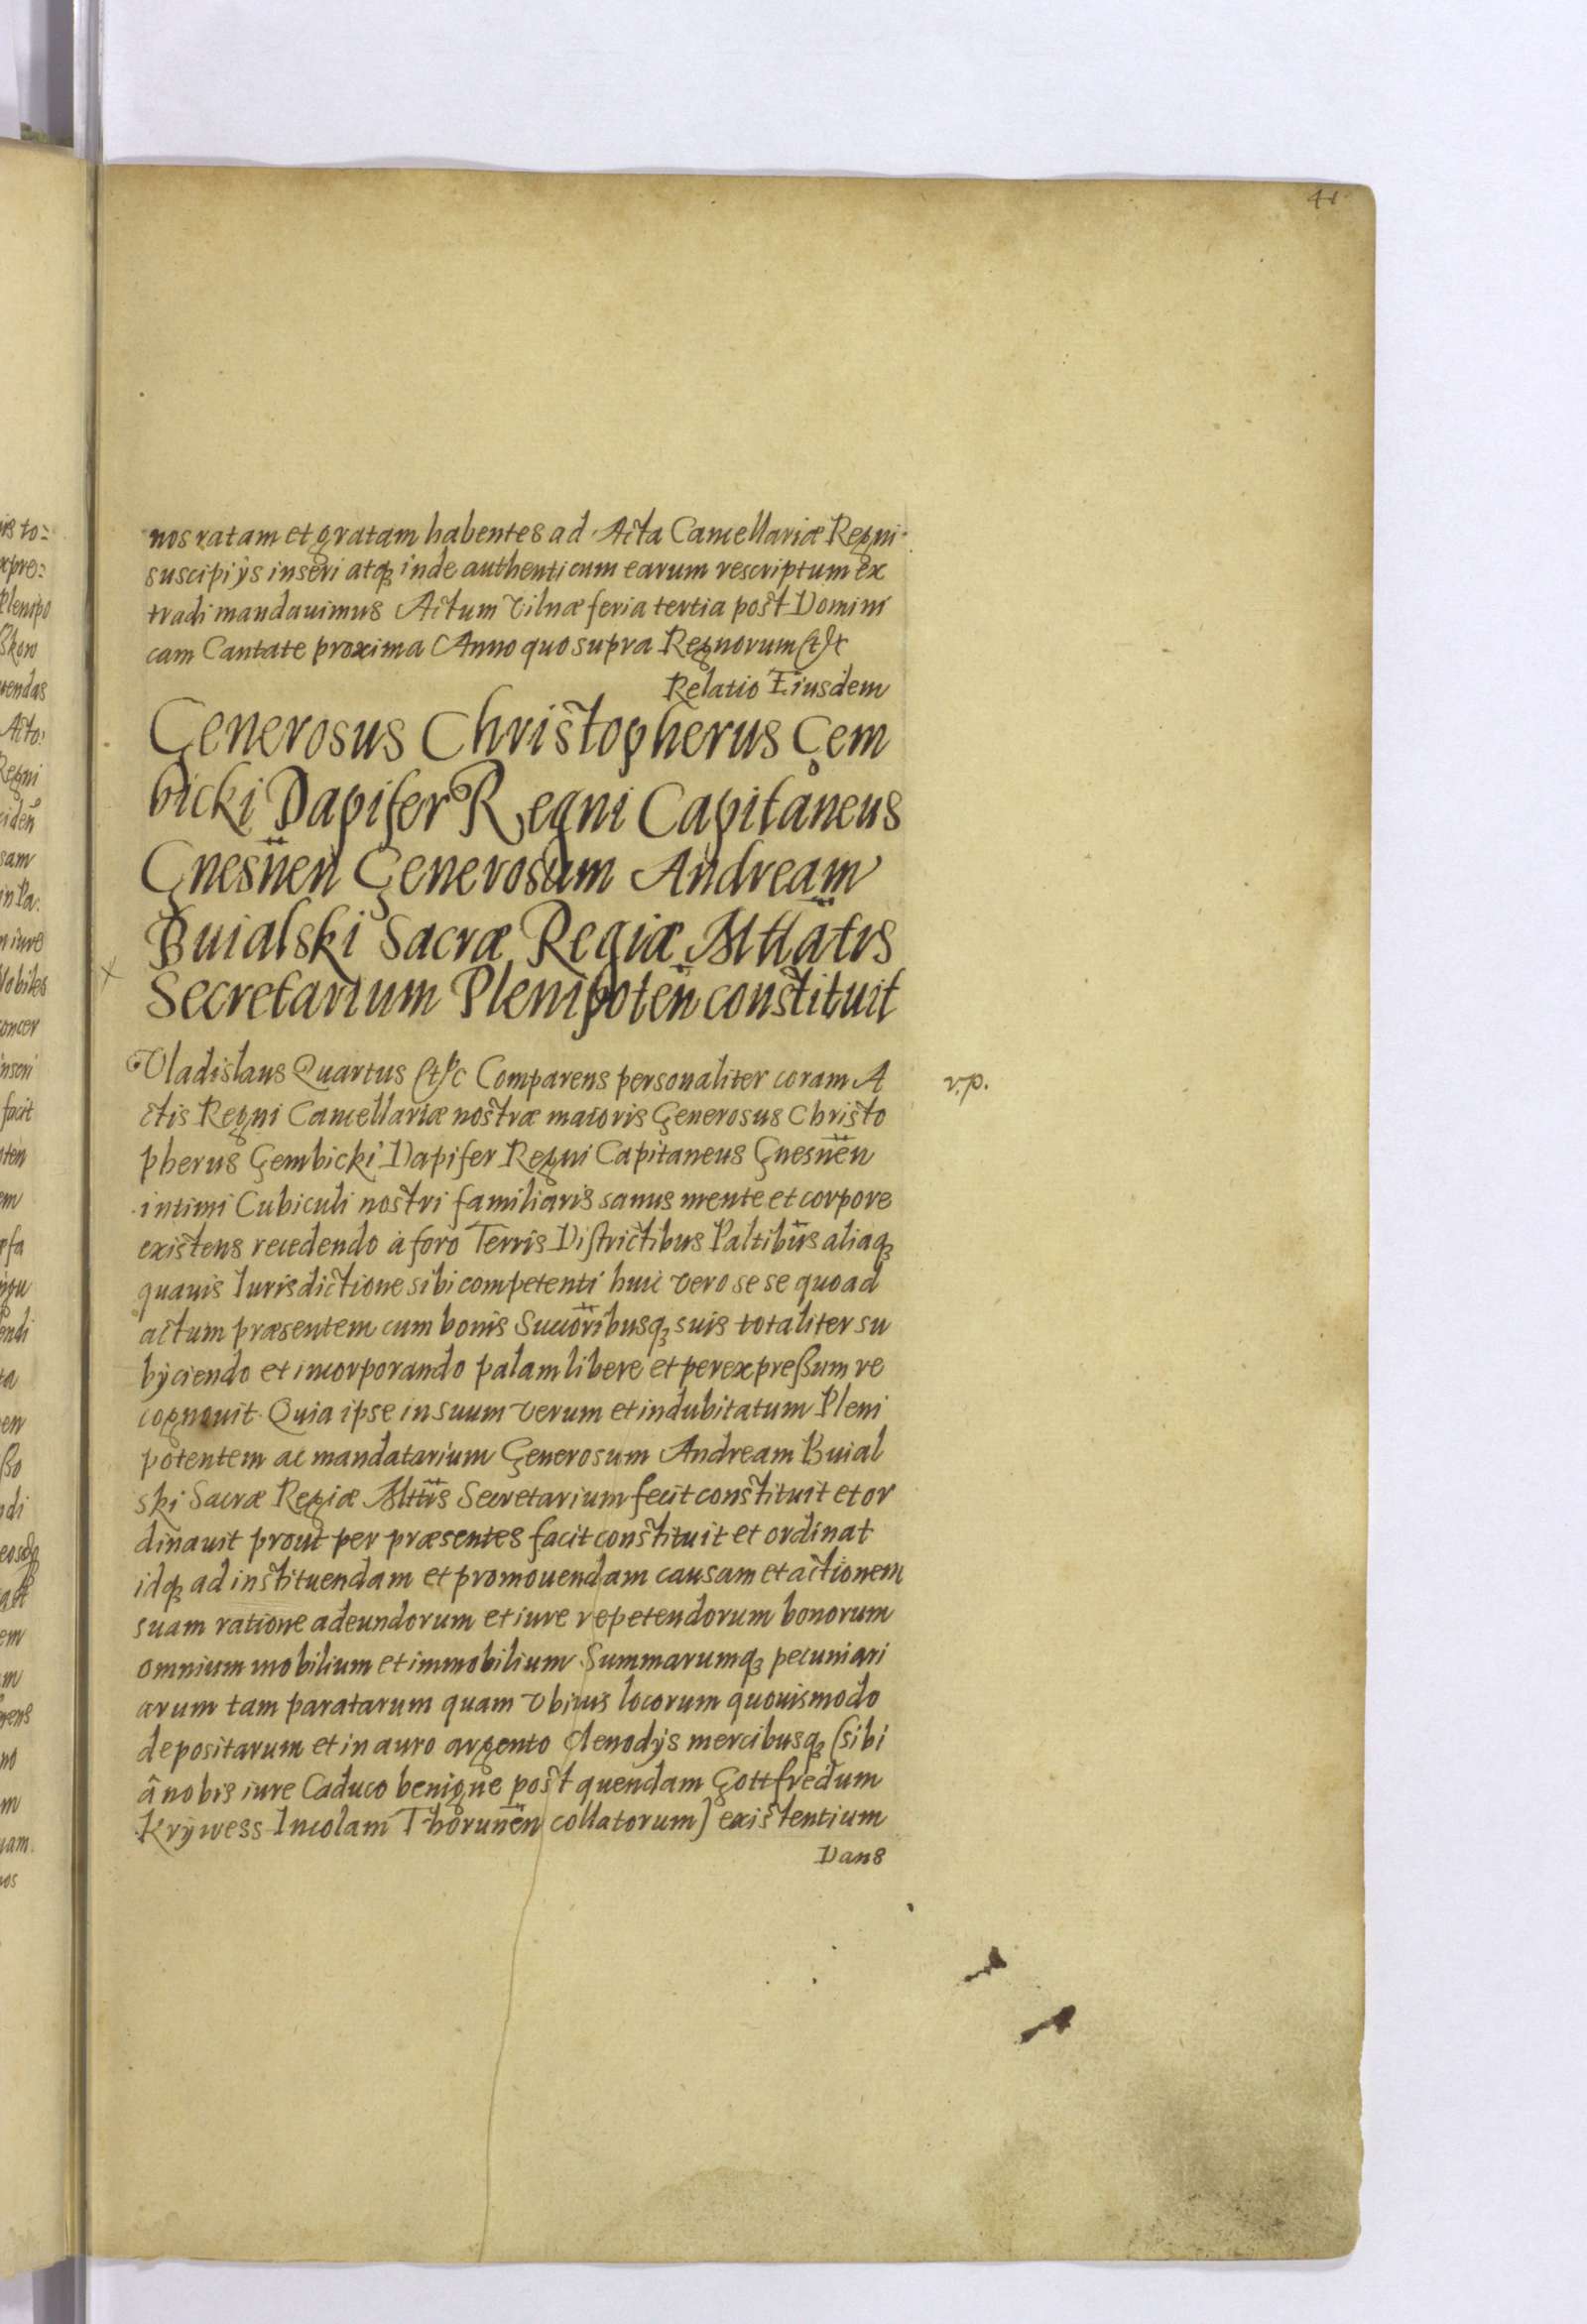 41
nos ratam et gratam habentes ad Acta Cancellariæ Regni
suscipi ijs inseri atq₃ inde authenticum earum rescriptum ex
tradi mandauimus Actum Vilnæ feria tertia post Domini
cam Cantate proxima Anno quo supra Regnorum etc
Relatio Eiusdem
Generosus Christopherus Gem
bicki Dapifer Regni Capitaneus
Gnesnen̈ Generosum Andream
Buialski Sacræ Regiæ Mttatis
Secretarium Plenipoten̈ constituit
Vladislaus Quartus etc Comparens personaliter coram A
ctis Regni Cancellariæ nostræ maioris Generosus Christo
v.p.
pherus Gembicki Dapifer Regni Capitaneus Gnesnen̈
intimi Cubiculi nostri familiaris sanus mente et corpore
existens recedendo à foro Terris Districtibus Paltibus aliaq₃
quauis Iurisdictione sibi competenti huic vero se se quoad
actum præsentem cum bonis Succoribusq₃ suis totaliter su
bijciendo et incorporando palam libere et per expreßum re
cognouit Quia ipse in suum verum et indubitatum Pleni
potentem ac mandatarium Generosum Andream Buial
ski Sacræ Regiæ Mttis Secretarium fecit constituit et or
dinauit prout per præsentes facit constituit et ordinat
idq₃ ad instituendam et promouendam causam et actionem
suam ratione adeundorum et iure repetendorum bonorum
omnium mobilium et immobilium Summarumq₃ pecuniari
arum tam paratarum quam vbiuis locorum quouismodo
depositarum et in auro argento clenodijs mercibusq₃ (sibi
â nobis iure Caduco benigne post quendam Gottfredum
Krÿwess Incolam Thorunen̈ collatorum) existentium
Dans